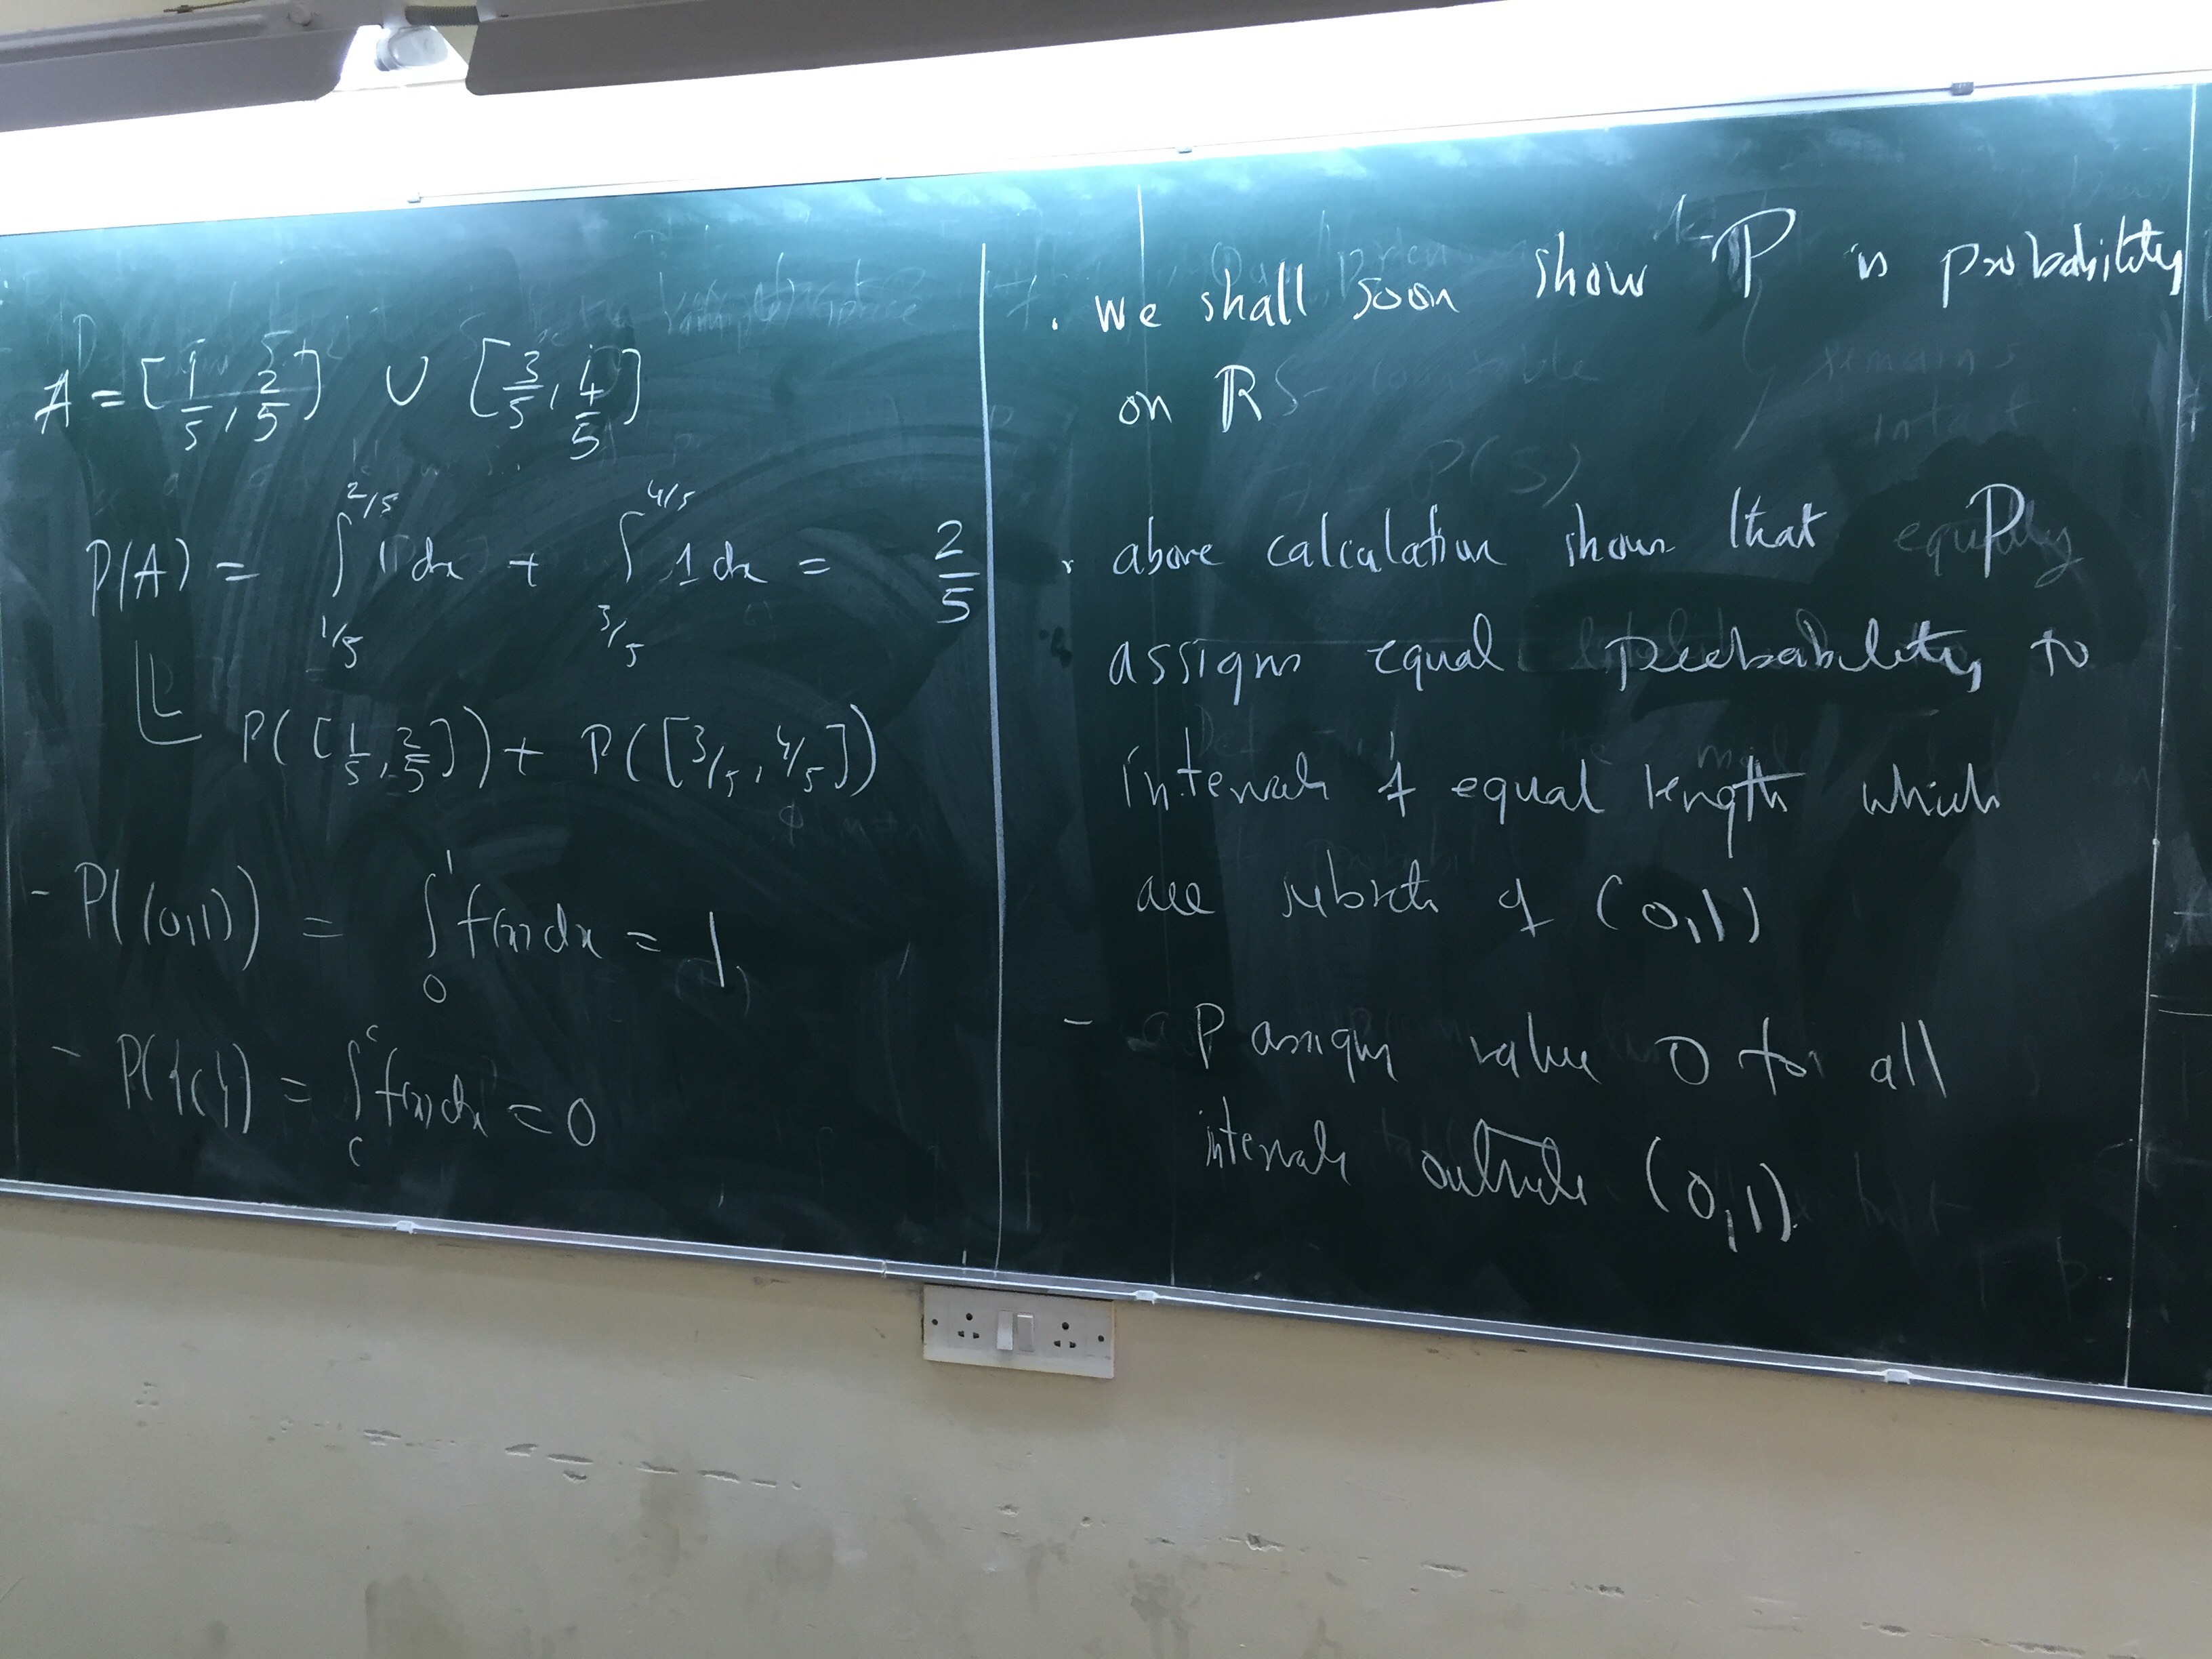 A = [1/5, 2/5] ∪ [3/5, 4/5]
P(A) = ∫_{1/5}^{2/5} 1 dx + ∫_{3/5}^{4/5} 1 dx = 2/5
P([1/5, 2/5]) + P([3/5, 4/5])
- P((0,1)) = ∫_0^1 f(x) dx = 1
- P({c}) = ∫_c^c f(x) dx = 0
. we shall soon show ℙ is probability
on ℝ
. above calculation shows that P
assigns equal probability to
intervals of equal length which
are subsets of (0,1)
- P assigns value 0 for all
intervals outside (0,1).